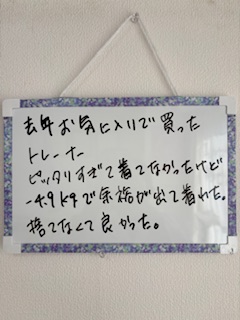 去年お気に入りで買った
トレーナー
ピッタリすぎて着てなかったけど
-4.9kgで余裕が出て着れた。
捨てなくて良かった。